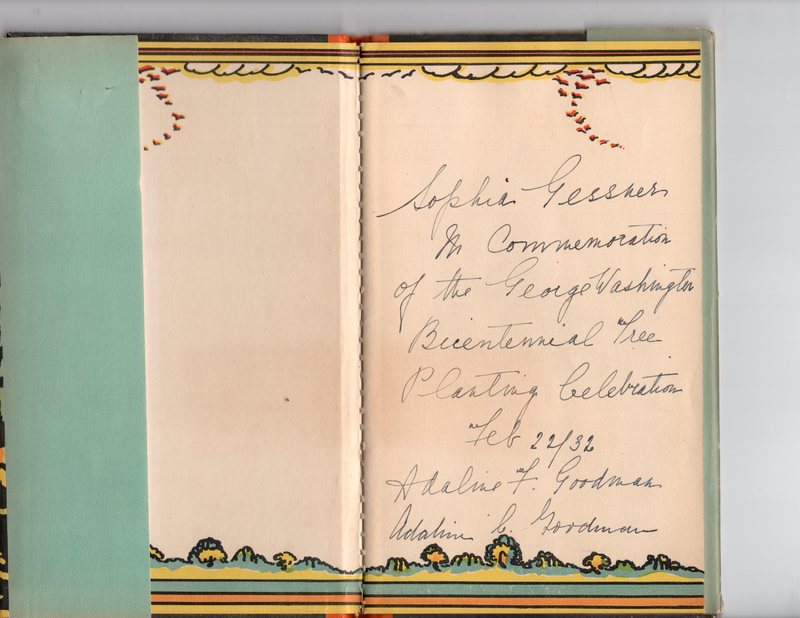 Sophia Gessner
In Commemoration
of the George Washington
Bicentennial Tree
Planting Celebration
Feb 22/32
Adaline F. Goodman
Adaline C. Goodman